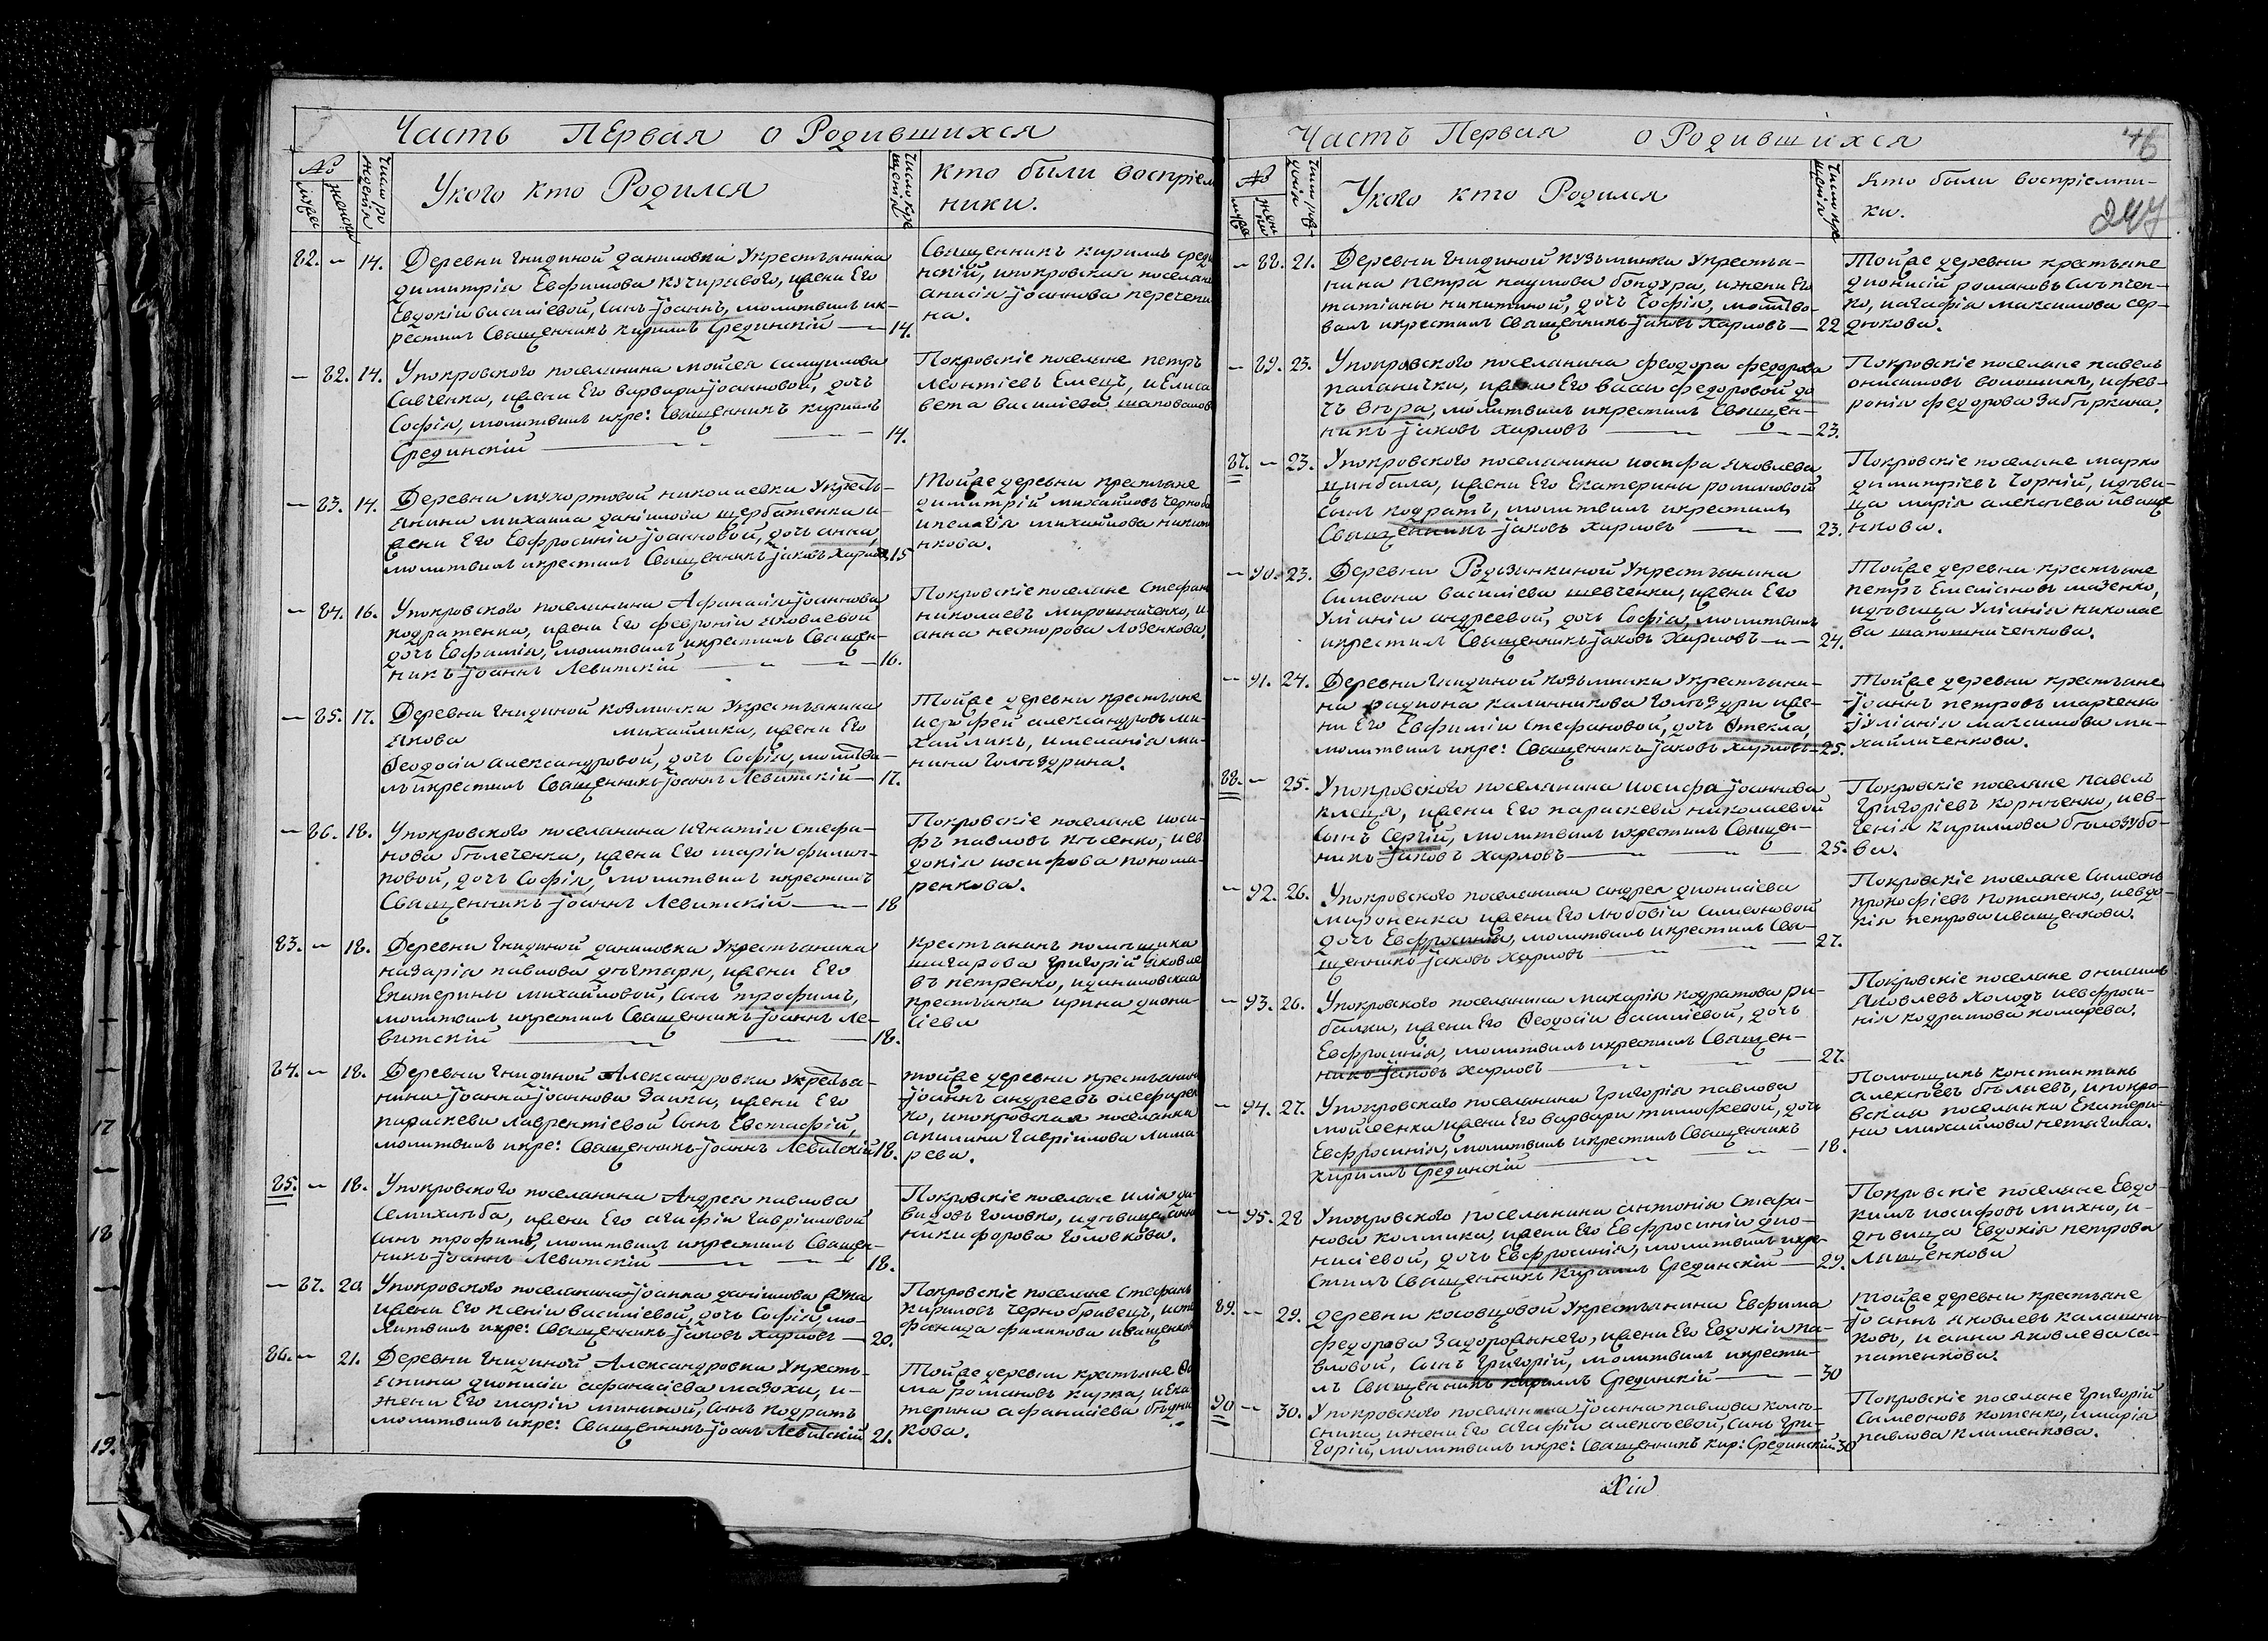 Часть Первая о Родившихся
№
мужес
женск
Число рождения
Укого кто Родился
Число крещенія
кто были воспріем
ники.
82. — 14. Деревни Гнидиной даниловки Укрестьянина
димитрія Евфимова кучирявого, ижены Его
Евдокіи василіевой, сынъ Іоаннъ, молитвилъ ик-
рестилъ Священникъ кирилъ Срединскій — 14.
Священникъ кирилъ среди
нскій, ипокровская поселян
анисія Іоаннова перечепи
на.
— 82. 14. Упокровского поселянина мойсея самуилова
Савченка, ижены Его варвары Іоанновой, дочь
Софія, молитвилъ икре: Священникъ кирилъ
Срединскій — 14.
Покровскіе поселяне петръ
леонтіевъ Емецъ, иЕлиса
вета василіева шаповалов
— 83. 14. Деревни мухортовой николаевки Укресть-
янина михаила даніилова щербатенка и-
жены Его Евфросиніи Іоанновой, дочь анна,
молитвилъ икрестилъ Священникъ Іаковъ Харлов. 15
Тойже деревни крестьяне
димитрій михайловъ чернобр
ипелагія михайлова никон
нкова.
— 84. 16. Упокровского поселянина Афанасія Іоаннова
кодратенка, ижены Его февроніи яковлевой
дочь Евфимія, молитвилъ икрестилъ Священ-
никъ Іоаннъ Левитскій — 16.
Покровскіе поселяне Стефан
николаевъ мирошниченко, и
анна несторова Лозенкова.
— 85. 17. Деревни Гнидиной козминки Укрестьянина
якова михайлика, ижены Его
Феодосіи александровой, дочь Софія, молитви-
лъ икрестилъ Священникъ Іоаннъ Левитскій — 17.
Тойже деревни крестьяне
иерофей александровъ ми-
хайликъ, имеланія ми-
нина Голыздрина.
— 86. 18. Упокровского поселянина игнатія стефа-
нова бѣлеченка, ижены Его маріи филип-
повой, дочь Софія, молитвилъ икрестилъ
Священникъ Іоаннъ Левитскій — 18
Покровскіе поселяне иоси-
фъ павловъ кѣсенко, иев
докія иосифова понома-
ренкова.
83. — 18. Деревни Гнидиной даниловка Укрестьянина
назарія павлова дѣгтяря, ижены Его
Екатерины михайловой, сынъ трофимъ,
молитвилъ икрестилъ Священникъ Іоаннъ Ле-
витскій — 18.
крестьянинъ помѣщика
шагарова Григорій яковле
въ петренко, иданиловская
крестьянка ирина діони-
сіева
84. — 18. Деревни Гнидиной Александровки Укрестья-
нина Іоанна Іоаннова Заики, ижены Его
параскевы лаврентіевой сынъ Евстафій,
молитвилъ икре: Священникъ Іоаннъ Левитскій 18.
тойже деревни крестьянин
Іоаннъ андреевъ олефирен
ко, ипокровская поселянка
акилина Гавріилова Лима
рева.
85. — 18. Упокровского поселянина Андрея павлова
Семихлѣба, ижены Его агафіи Гавріиловой
сынъ трофимъ, молитвилъ икрестилъ Священ-
никъ Іоаннъ Левитскій — 18.
Покровскіе поселяне илія да-
видовъ Головко, идѣвица анна
никифорова Головкова.
— 87. 20 Упокровского поселянина Іоанна даніилова
ижены Его ксеніи василіевой, дочь Софія, мо-
литвилъ икре: Священникъ Іаковъ Харловъ — 20.
Покровскіе поселяне Стефанъ
кириловъ чернобривецъ, исте
фанида филипова иващенков
86. — 21. Деревни Гнидиной Александровки Укресть-
янина діонисія афанасіева мазохи, и-
жены Его маріи мининой, сынъ кодратъ
молитвилъ икре: Священникъ Іоаннъ Левитскій 21.
Тойже деревни крестьяне Фо
ма романовъ кирпа, иЕка-
терина афанасіева бѣдня
кова.
Часть Первая о Родившихся
247
№
Укого кто Родился
Кто были воспріемни-
ки.
— 88. 21. Деревни Гнидиной кузьминки Укрестья-
нина петра наумова бондура, ижены Его
татіаны никитиной, дочь Софія, молитво-
валъ икрестилъ Священникъ Іаковъ Харловъ — 22
Тойже деревни крестьяне
діонисій романовъ Слѣпчен-
ко, иагафія максимова сер-
дюкова.
— 89. 23. Упокровского поселянина феодора федорова
паланички, ижены Его васы федоровой до
чь вѣра, молитвилъ икрестилъ Священ-
никъ Іаковъ Харловъ — 23.
Покровскіе поселяне павелъ
онисимовъ волошинъ, ифев-
ронія федорова Забѣркина.
87. — 23. Упокровского поселянина иосифа яковлева
цинбала, ижены Его Екатерины романовой
Сынъ кодратъ, молитвилъ икрестилъ
Священникъ Іаковъ Харловъ — 23.
Покровскіе поселяне марко
димитріевъ Чорній, идѣви-
ца марія алексѣева иваще
нкова.
— 90. 23. Деревни Родзянкиной Укрестьянина
Симеона василіева шевченка, ижены Его
Уліаніи андреевой, дочь Софія, молитвилъ
икрестилъ Священникъ Іаковъ Харловъ — 24.
Тойже деревни крестьяне
петръ Емеліановъ мазенко,
идѣвица Уліанія николае
ва шапошниченкова.
— 91. 24. Деревни Гнидиной козьминки Укрестьяни-
на радиона калинникова Голыздри иже-
ны Его Евфиміи Стефановой, дочь Фекла,
молитвилъ икре: Священникъ Іаковъ Харловъ — 25.
Тойже деревни крестьяне
Іоаннъ петровъ марченко
Іуліанія максимова ми-
хайличенкова.
88. — 25. Упокровского поселянина иосифа Іоаннова
клеця, ижены Его параскевы николаевой
Сынъ Сергій, молитвилъ икрестилъ Священ-
никъ Іаковъ Харловъ — 25.
Покровскіе поселяне павелъ
Григоріевъ корнѣенко, иев-
генія кирилова бѣлозубо-
ва.
— 92. 26. Упокровского поселянина андрея діонисіева
мироненка ижены Его любови симеоновой
дочь Евфросинія, молитвилъ икрестилъ Свя-
щенникъ Іаковъ Харловъ — 27.
Покровскіе поселяне Сымеонъ
прокофіевъ потапенко, иевдо-
кія петрова иващенкова.
— 93. 26. Упокровского поселянина макарія кодратова ри-
балки, ижены Его Феодосіи василіевой, дочь
Евфросинія, молитвилъ икрестилъ Священ-
никъ Іаковъ Харловъ — 27.
Покровскіе поселяне онисимъ
яковлевъ холодъ иевфроси-
нія кодратова комарева.
— 94. 27. Упокровского поселянина Григорія павлова
мойсеенки ижены Его варвары тимофеевой, дочь
Евфросинія, молитвилъ икрестилъ Священникъ
Кирилъ Срединскій — 18.
Помѣщикъ константинъ
алексѣевъ бѣляевъ, ипокро-
вская поселянка Екатери-
на михайлова нетягина.
— 95. 28 Упокровского поселянина антонія Стефа-
нова колтика, ижены Его Евфросиніи діо-
нисіевой, дочь Евфросинія, молитвилъ икре-
стилъ Священникъ Кирилъ Срединскій — 29.
Покровскіе поселяне Евдо-
кимъ иосифовъ михно, и-
дѣвица Евдокія петрова
Лященкова
89. — 29. деревни косовцовой Укрестьянина Евфима
федорова Задорожнего, ижены Его Евдокіи па-
вловой, сынъ Григорій, молитвилъ икрести-
лъ Священникъ Кирилъ Срединскій — 30
Тойже деревни крестьяне
Іоаннъ яковлевъ калашни-
ковъ, и анна яковлева са-
патенкова.
90 — 30. Упокровского поселянина Іоанна павлова колѣ-
сника, ижены Его агафіи алексѣевой, сынъ Гри-
горій, молитвилъ икре: Священникъ Кир: Срединскій 30
Покровскіе поселяне Григорій
Сымеоновъ котенко, имарія
павлова клименкова.